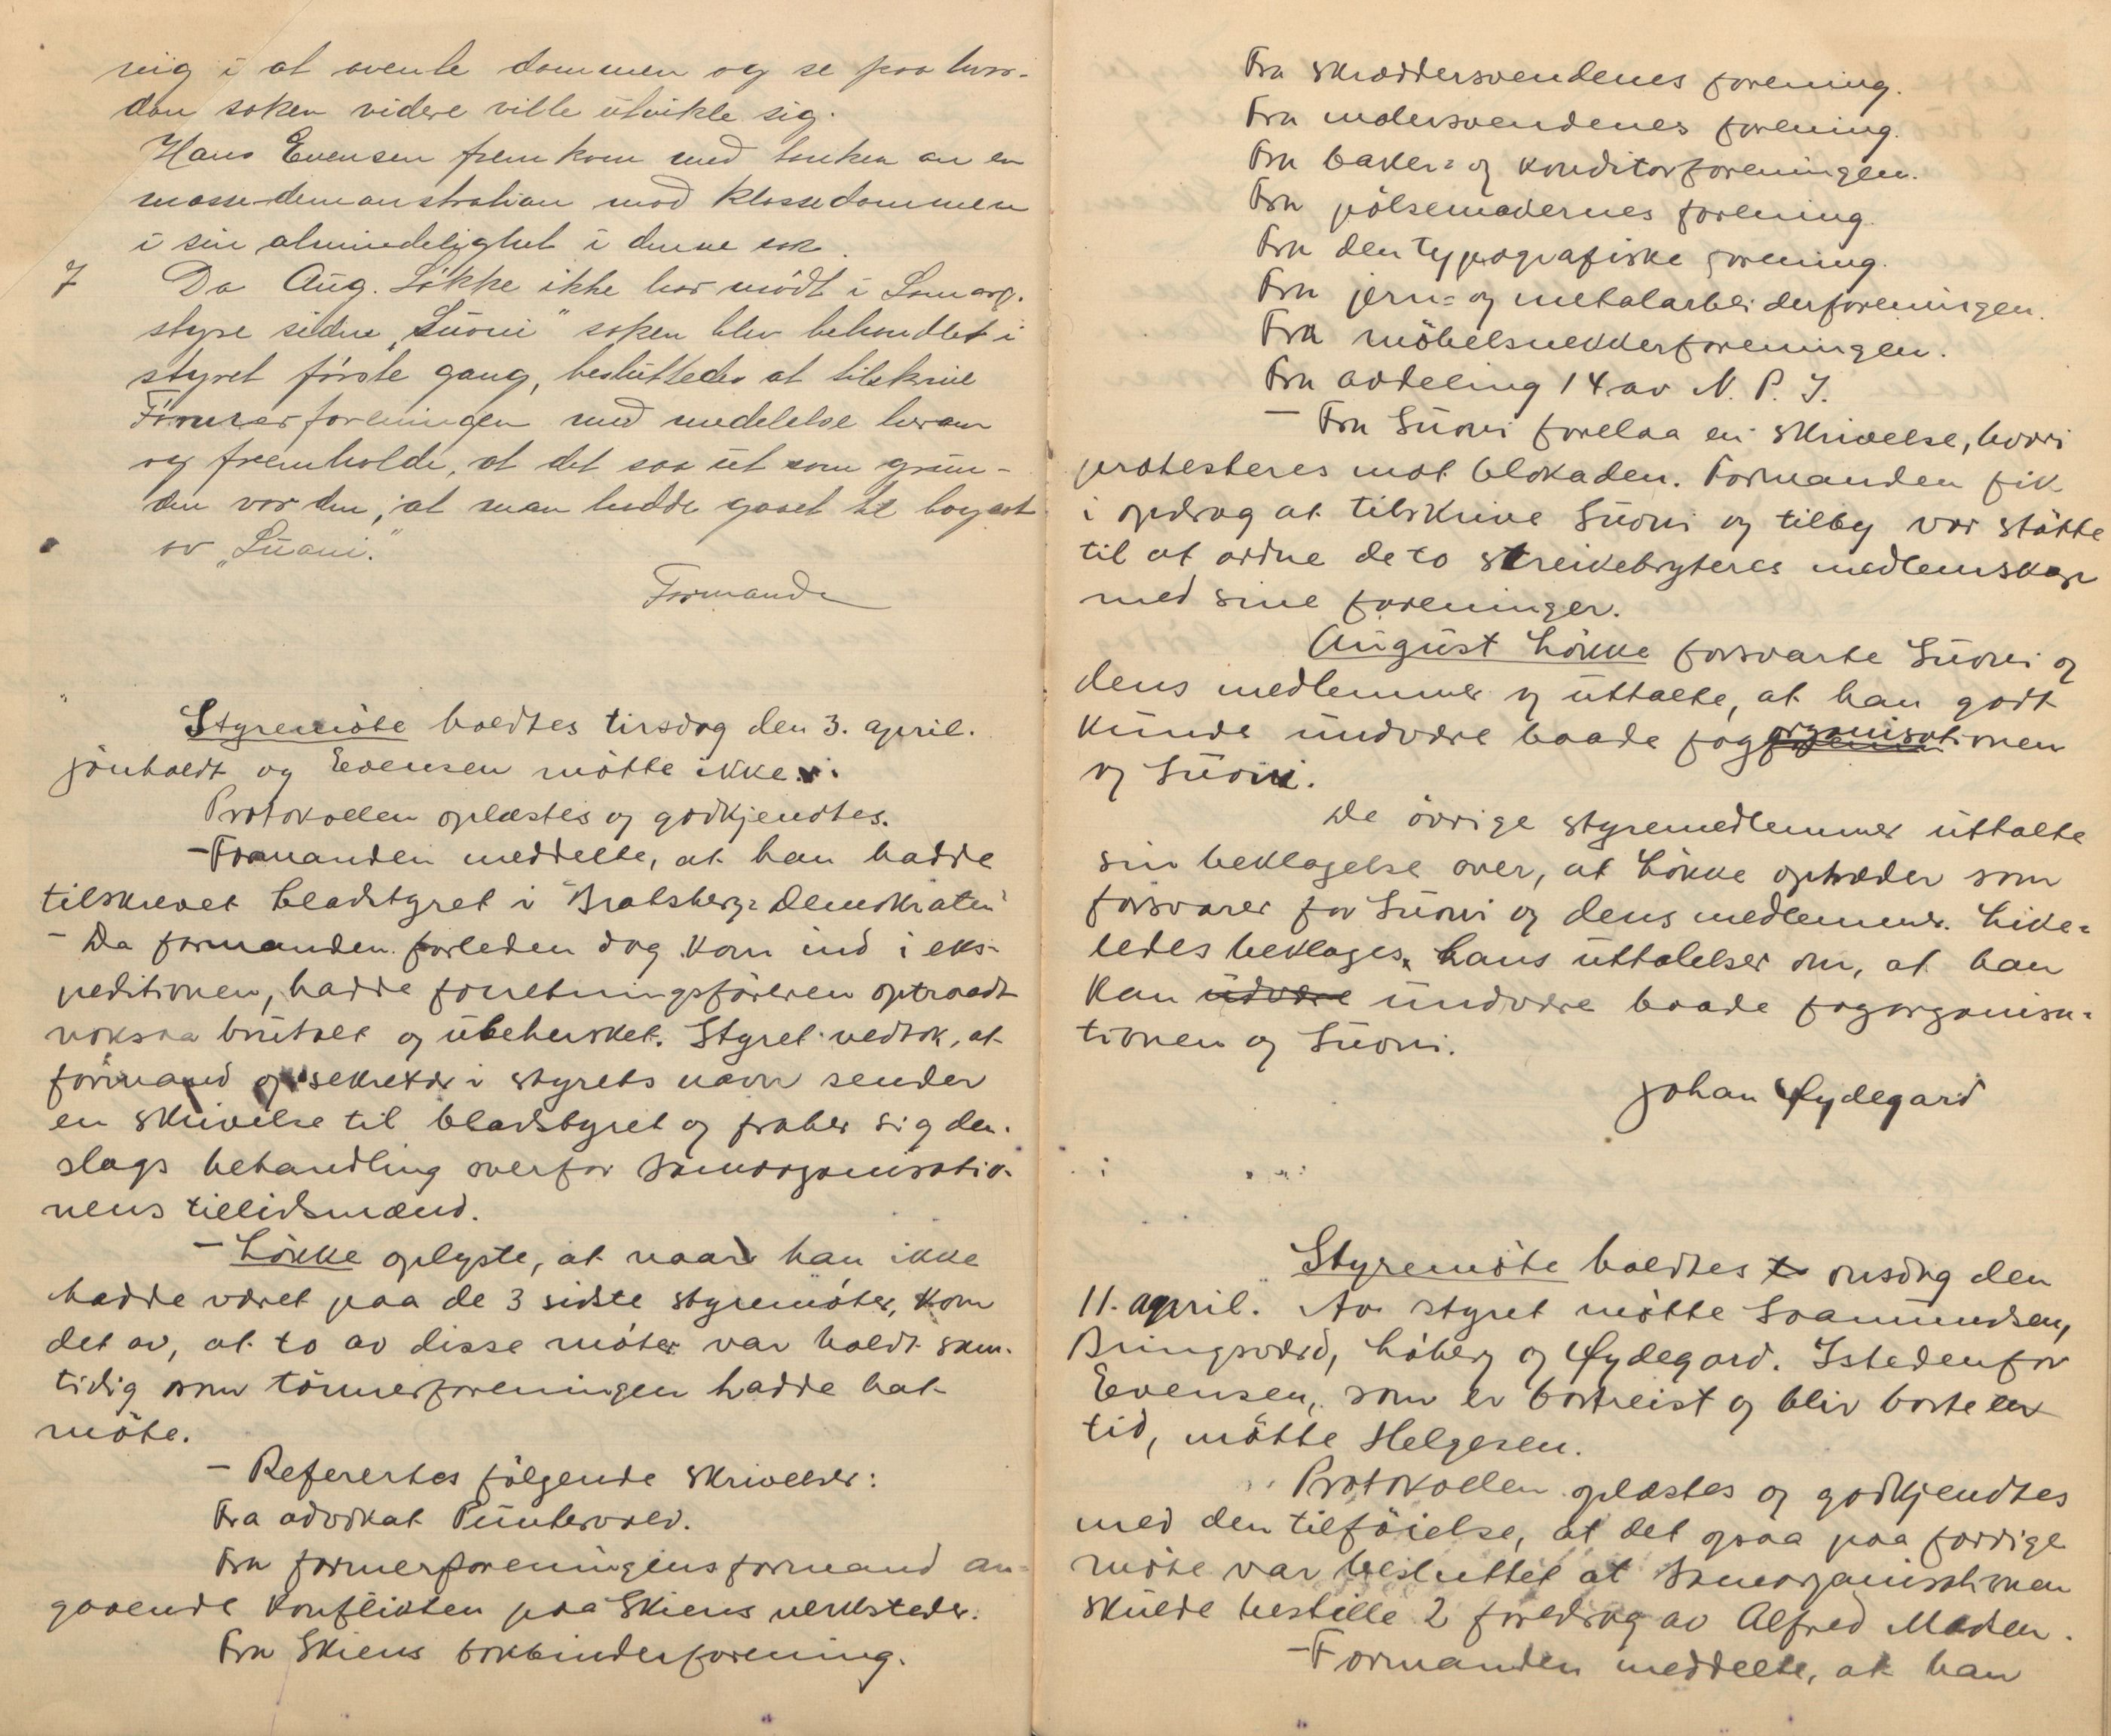 nig i at avente dommen og se paa hvor-
dan saken videre ville utvikle sig.
Hans Evensen frem kom med tanken om en
masse-demonstration mod klassedommen
i sin almindelighet i denne sak.
7 Da Aug. Løkke ikke har mødt i Samorg.
styre siden „Suoni" saken blev behandlet i
styret første gang, besluttedes at tilskrive
Tømrerforeningen med meddelelse herom
og fremholde, at det saa ut som grun-
den var den, at man hadde gaaet til boycot
av „Suoni."
Formand
Styremöte holdtes tirsdag den 3. april.
Jönholdt og Evensen mötte ikke.
Protokollen oplæstes og godkjendtes.
- Formanden meddelte, at han hadde
tilskrevet bladstyret i "Bratsberg-Demokraten"
- Da formanden forleden dag kom ind i eks-
peditionen, hadde forretningsföreren optraadt
noksaa brutalt og ubehersket. Styret vedtok, at
formand og sekretær i styrets navn sender
en skrivelse til bladstyret og fraber sig den-
slags behandling overfor Samorganisatio-
nens tillidsmænd.
- Lökke oplyste, at naar han ikke
hadde været paa de 3 sidste styremöter, kom
det av, at to av disse möter var holdt sam-
tidig som tömrerforeningen hadde hat
möte.
- Refertes fölgende skrivelser:
Fra advokat Puntervold.
Fra formerforeningens formand an-
gaaende konflikten paa Skiens verksteder.
Fra Skiens bokbinderforening.
Fra skræddersvendenes forening.
Fra malersvendenes forening.
Fra baker- og konditorforeningen.
Fra pölsemakernes forening.
Fra den typografiske forening.
Fra jern- og metalarbeiderforeningen.
Fra möbelsnekkerforeningen.
Fra avdeling 14 av N. P. I.
- Fra Suoni forelaa en skrivelse, hvori
protesteres mot blokaden. Formanden fik
i opdrag at tilskrive Suoni og tilby vor stötte
til at ordne de to streikebryteres medlemskap
med sine foreninger.
August Lökke forsvarte Suoni og
dens medlemmer og uttalte, at han godt
kunde undvære baade fagorganisationen
og Suoni.
De övrige styremedlemmer uttalte
sin beklagelse over, at Lökke optræder som
forsvarer for Suoni og dens medlemmer. Like-
ledes beklages hans uttalelser om, at han
kan udvære undvære baade fagorganisa-
tionen og Suoni.
Johan Øydegard
Styremöte holdtes t onsdag den
11. april. Av styret mötte Svanumdsen,
Bringsværd, Löberg og Øydegard. Istedenfor
Evensen, som er bortreist og blir borte en
tid, mötte Helgesen.
Protokollen oplæstes og godkjendtes
med den tilföielse, at det ogsaa paa forrige
möte var besluttet at Samorganisationen
skulde bestille 2 foredrag av Alfred Madsen.
- Formanden meddelte, at han